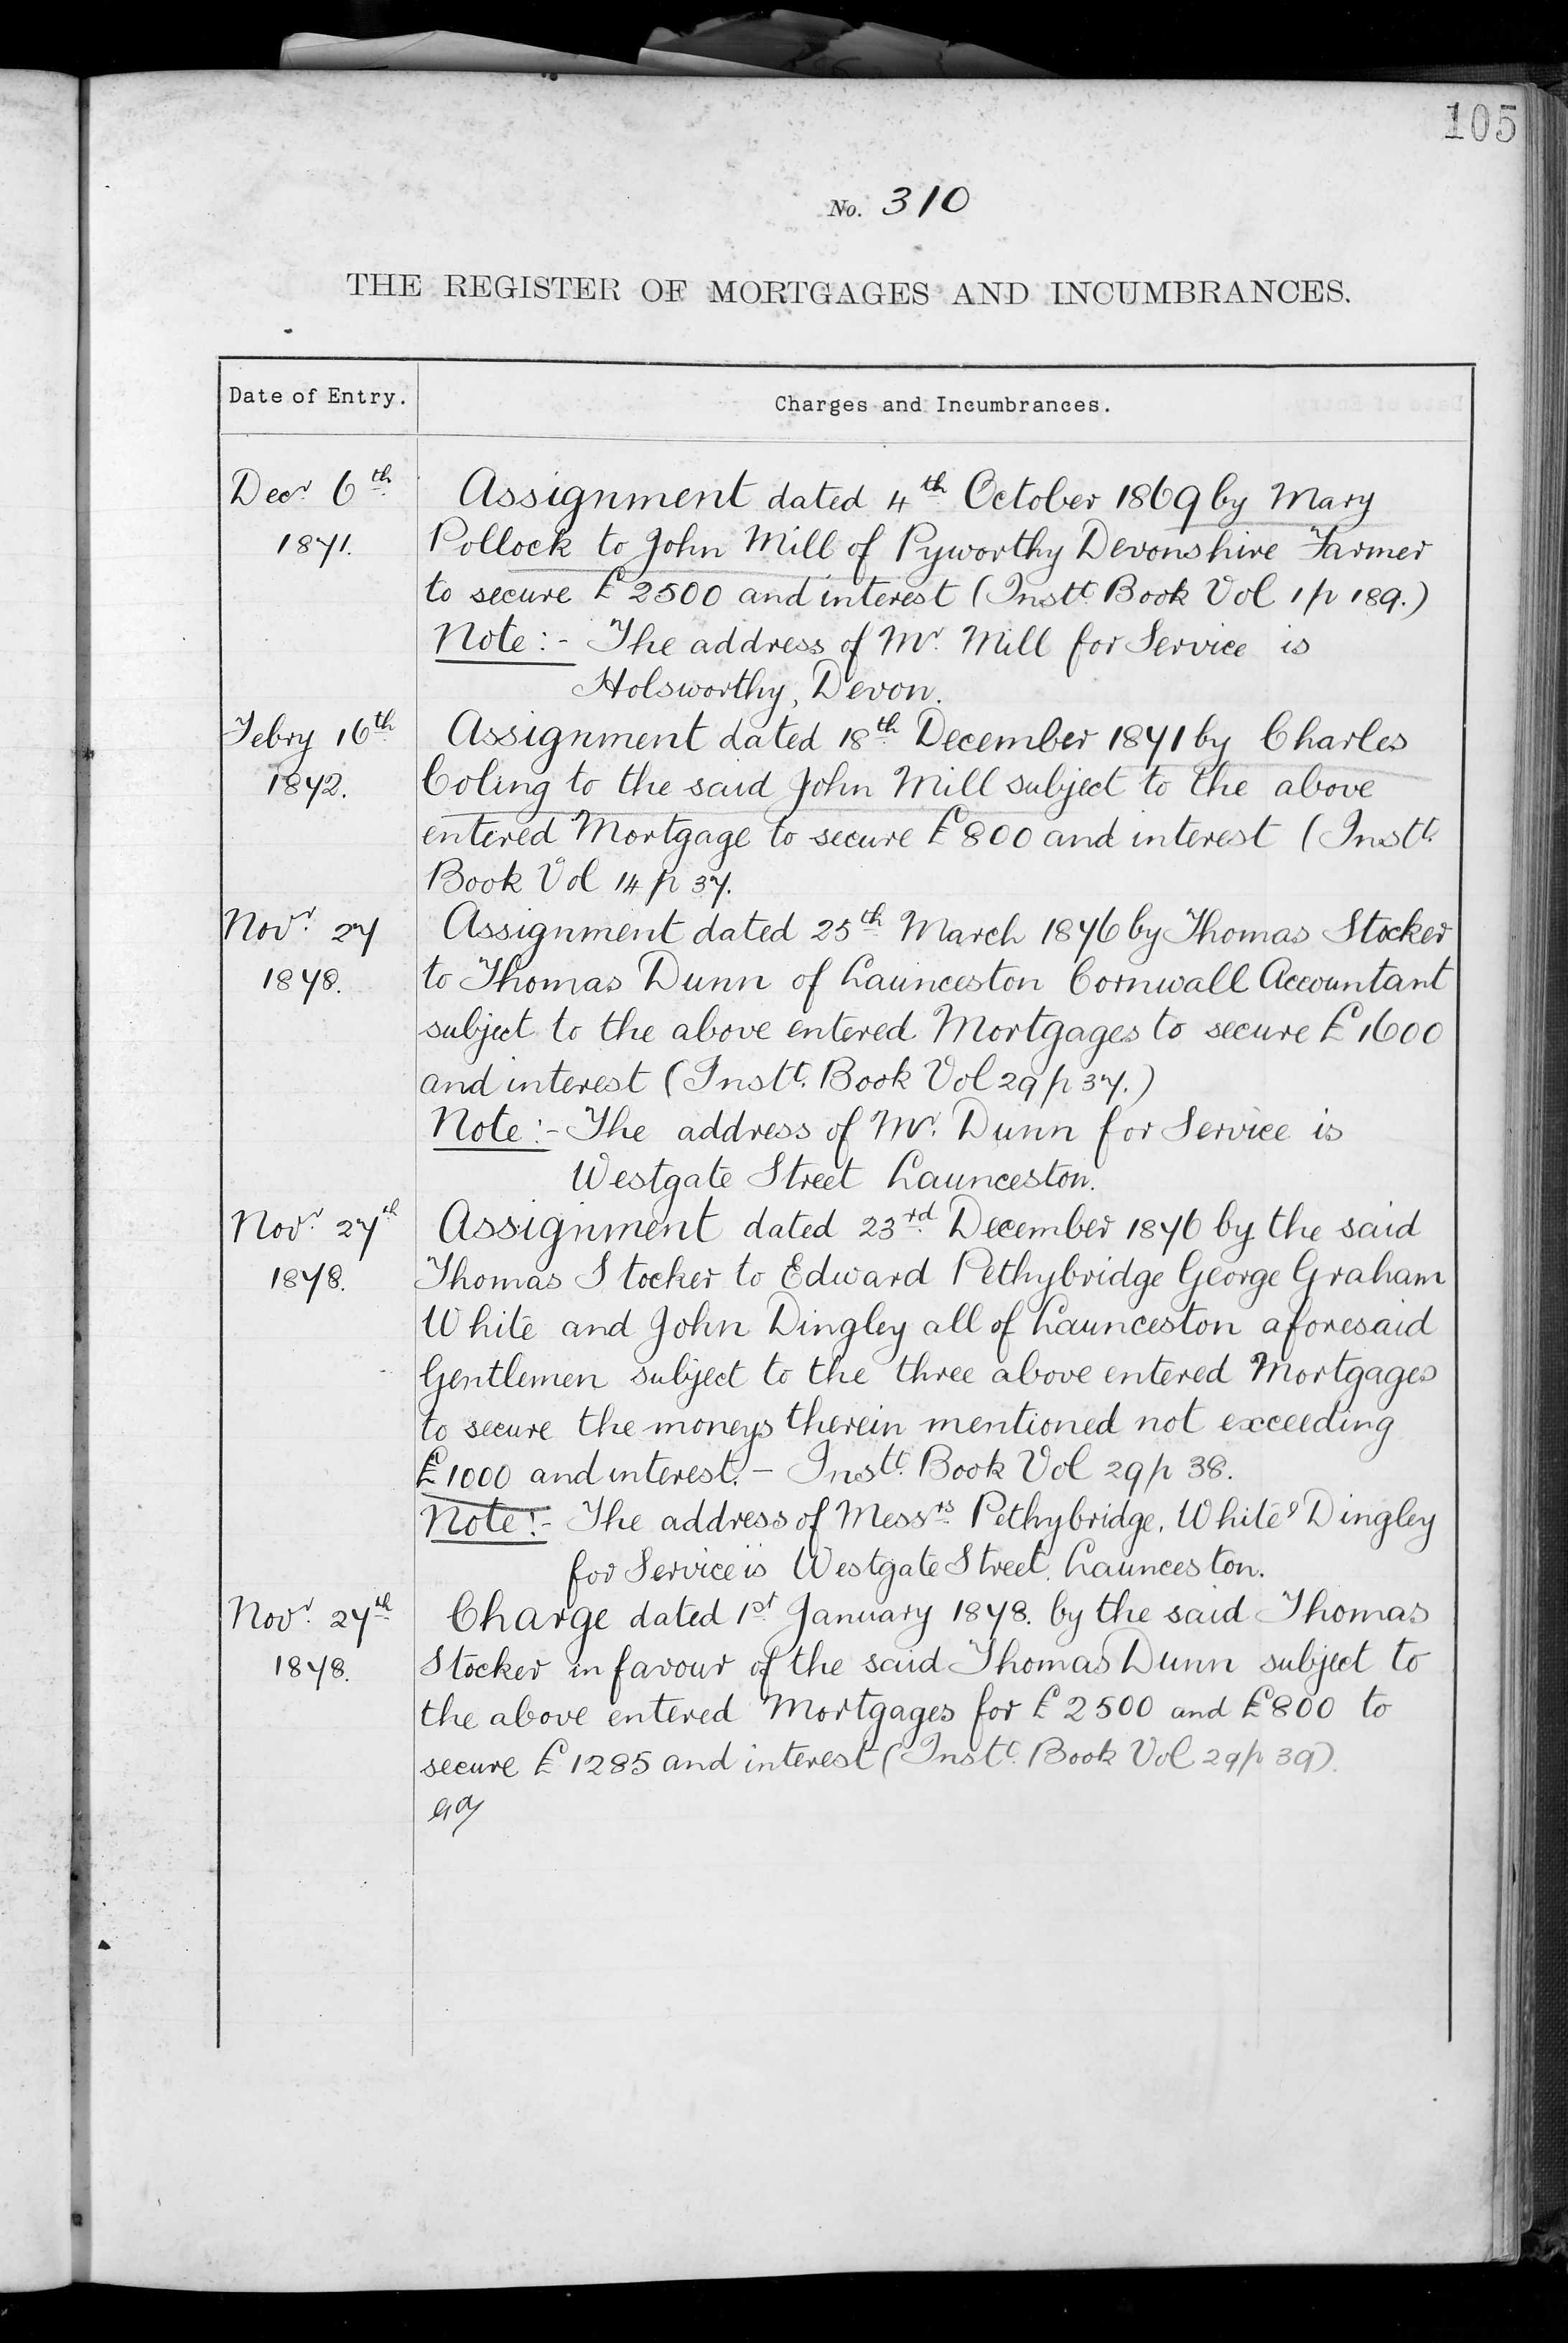 105
No. 310
THE REGISTER OF MORTGAGES AND INCUMBRANCES.
Date of Entry.
Charges and Incumbrances.
Decr. 6th
1871.
Assignment dated 4th October 1869 by Mary
Pollock to John Mill of Pyworthy Devonshire Farmer
to secure £2500 and interest (Instt. Book Vol 1 p 189.)
Note:- The address of Mr. Mill for Service is
Holsworthy, Devon.
Febry 16th
1872.
Assignment dated 18th December 1871 by Charles
Coling to the said John Mill subject to the above
entered Mortgage to secure £800 and interest (Instt.
Book Vol 14 p 37.
Novr. 27
1878.
Assignment dated 25th March 1876 by Thomas Stocker
to Thomas Dunn of Launceston Cornwall Accountant
subject to the above entered Mortgages to secure £1600
and interest (Instt. Book Vol 29 p 37.)
Note:- The address of Mr. Dunn for Service is
Westgate Street Launceston.
Novr. 27th
1878.
Assignment dated 23rd December 1876 by the said
Thomas Stocker to Edward Pethybridge George Graham
White and John Dingley all of Launceston aforesaid
Gentlemen subject to the three above entered Mortgages
to secure the moneys therein mentioned not exceeding
£1000 and interest. - Instt. Book Vol 29 p 38.
Note:- The address of Messrs. Pethybridge, White & Dingley
for Service is Westgate Street, Launceston.
Novr. 27th
1878.
Charge dated 1st January 1878. by the said Thomas
Stocker in favour of the said Thomas Dunn subject to
the above entered Mortgages for £2500 and £800 to
secure £1285 and interest (Instt. Book Vol 29 p 39).